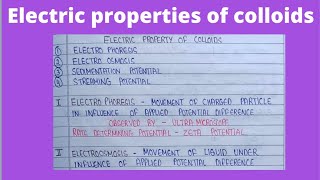 Electric properties of colloids
ELECTRIC PROPERTY OF COLLOIDS
① ELECTRO PHORESIS
② ELECTRO OSMOSIS
③ SEDIMENTATION POTENTIAL
④ STREAMING POTENTIAL
I ELECTROPHORESIS - MOVEMENT OF CHARGED PARTICLE
IN INFLUENCE OF APPLIED POTENTIAL DIFFERENCE
OBSERVED BY - ULTRA MICROSCOPE
RATE DETERMINING POTENTIAL - ZETA POTENTIAL
II ELECTROOSMOSIS - MOVEMENT OF LIQUID UNDER
INFLUENCE OF APPLIED POTENTIAL DIFFERENCE